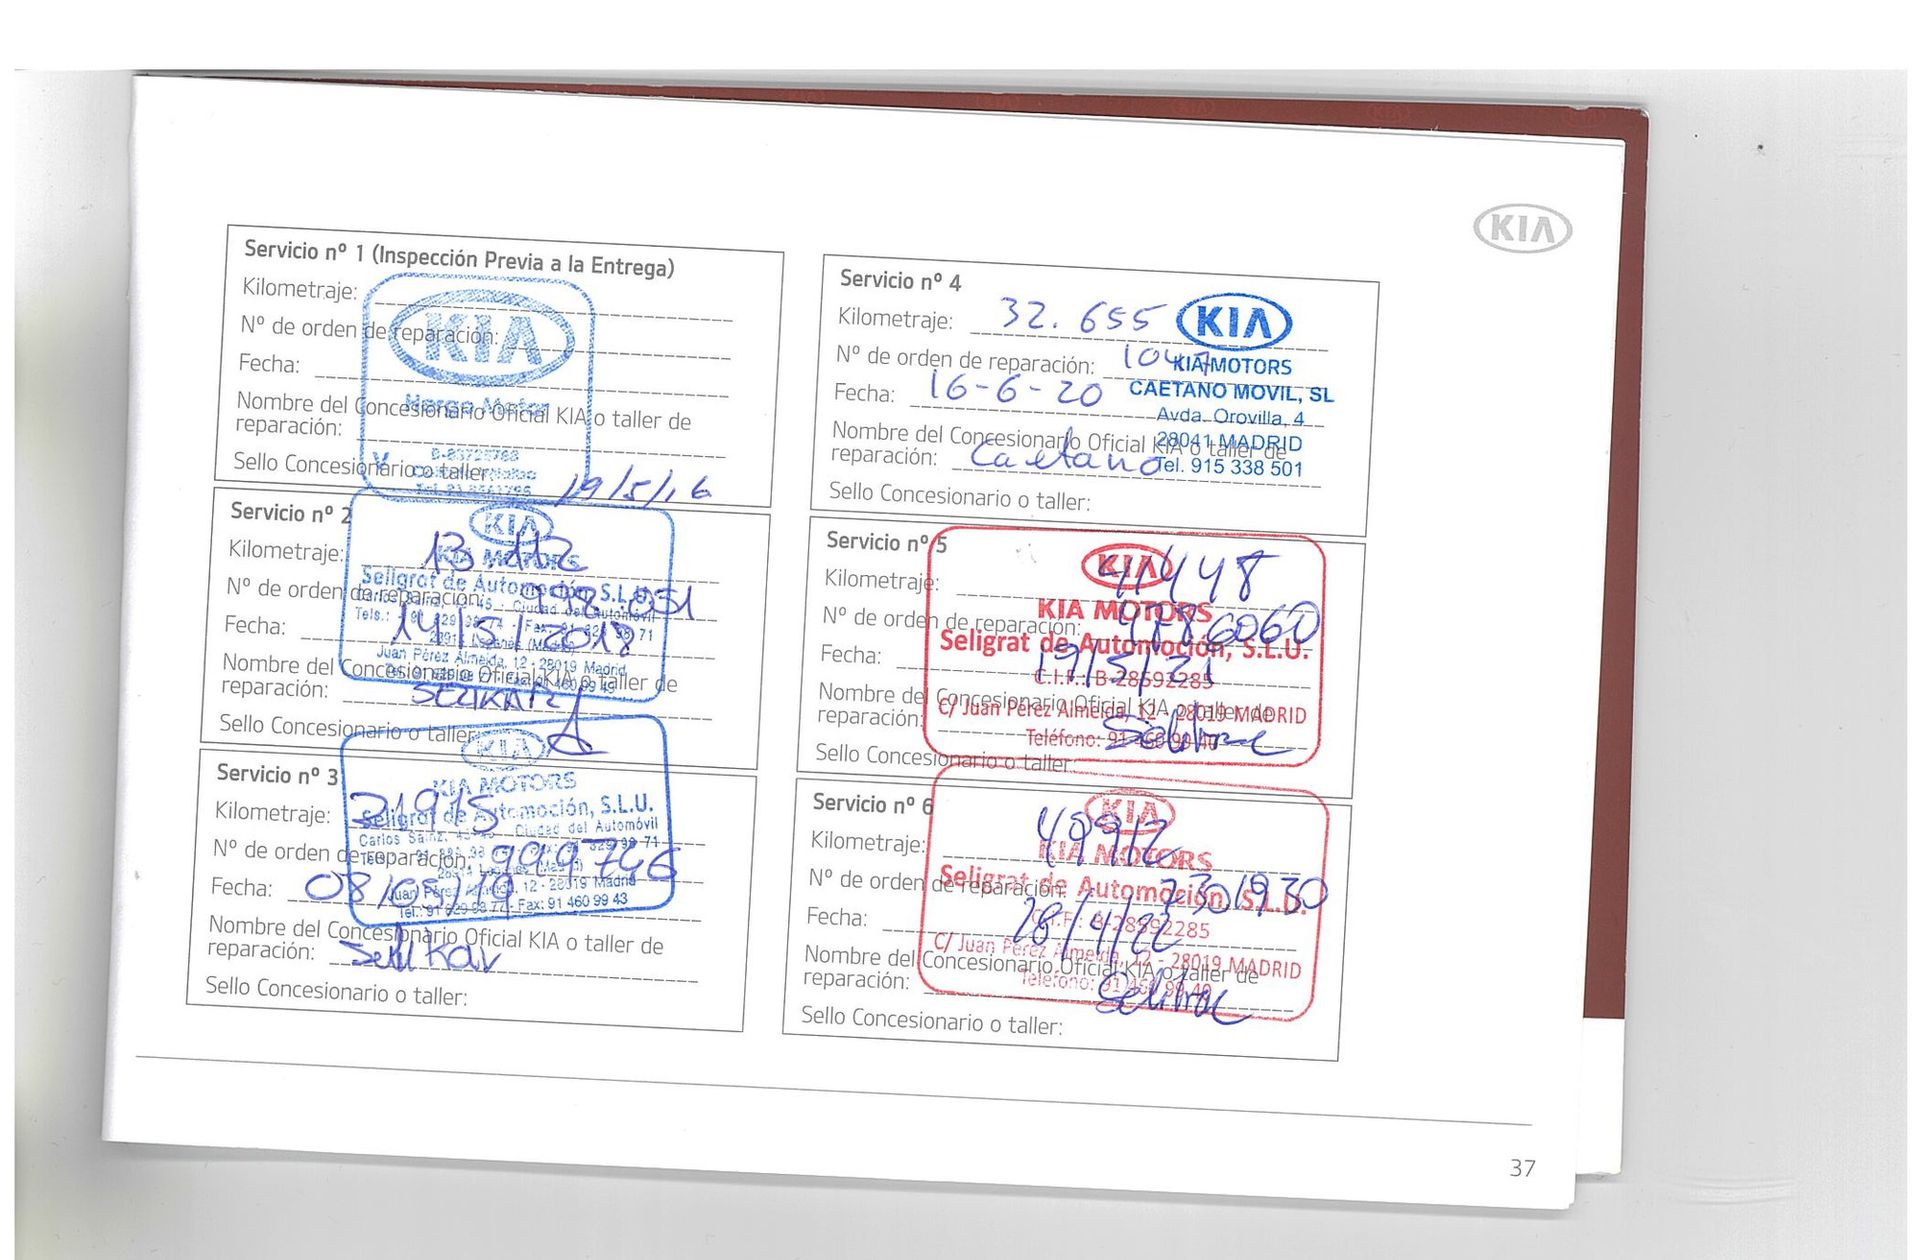 KIA
Servicio nº 1 (Inspección Previa a la Entrega)
Kilometraje:
Nº de orden de reparación:
Fecha:
Nombre del Concesionario Oficial KIA o taller de
reparación:
Sello Concesionario o taller:
KIA
Hargo Motor
19/5/16
Servicio nº 2
Kilometraje:
Nº de orden de reparación: 998 051
Fecha: 14/5/2018
Nombre del Concesionario Oficial KIA o taller de
reparación:
Sello Concesionario o taller:
KIA
KIA MOTORS
Seligrat de Automoción, S.L.U.
Juan Pérez Almeida, 12 - 28019 Madrid
Servicio nº 3
Kilometraje: 21975
Nº de orden de reparación: 999746
Fecha: 08/05/19
Nombre del Concesionario Oficial KIA o taller de
reparación:
Sello Concesionario o taller:
KIA
KIA MOTORS
Seligrat de Automoción, S.L.U.
Carlos Sainz, Ciudad del Automóvil
Juan Pérez Almeida, 12 - 28019 Madrid
Fax: 91 460 99 43
Servicio nº 4
Kilometraje: 32.655
Nº de orden de reparación: 1047
Fecha: 16-6-20
Nombre del Concesionario Oficial KIA o taller de
reparación: Caetano
Sello Concesionario o taller:
KIA
KIA MOTORS
CAETANO MOVIL, SL
Avda. Orovilla, 4
28041 MADRID
Tel. 915 338 501
Servicio nº 5
Kilometraje: 41448
Nº de orden de reparación: 4786060
Fecha: 19/5/21
Nombre del Concesionario Oficial KIA o taller de
reparación:
Sello Concesionario o taller:
KIA
KIA MOTORS
Seligrat de Automoción, S.L.U.
C.I.F.: B-28592285
C/ Juan Pérez Almeida, 12 - 28019 MADRID
Teléfono: 91 460 99 40
Servicio nº 6
Kilometraje: 49912
Nº de orden de reparación: 2301930
Fecha: 28/4/22
Nombre del Concesionario Oficial KIA o taller de
reparación:
Sello Concesionario o taller:
KIA
KIA MOTORS
Seligrat de Automoción, S.L.U.
C.I.F.: B-28592285
C/ Juan Pérez Almeida, 12 - 28019 MADRID
Teléfono: 91 460 99 40
37